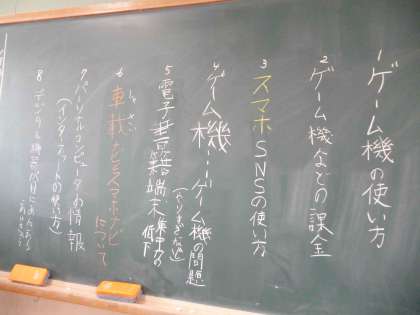 1 ゲーム機の使い方
2 ゲーム機会での課金
3 スマホSNSの使い方
4 ゲーム機…ゲーム機の問題
(やりすぎなど)
5 電子書籍端末 集中力の低下
6 車載ナビ
について
7 パーソナルコンピュータの情報
(インターネットの使い方)
8 デジタル